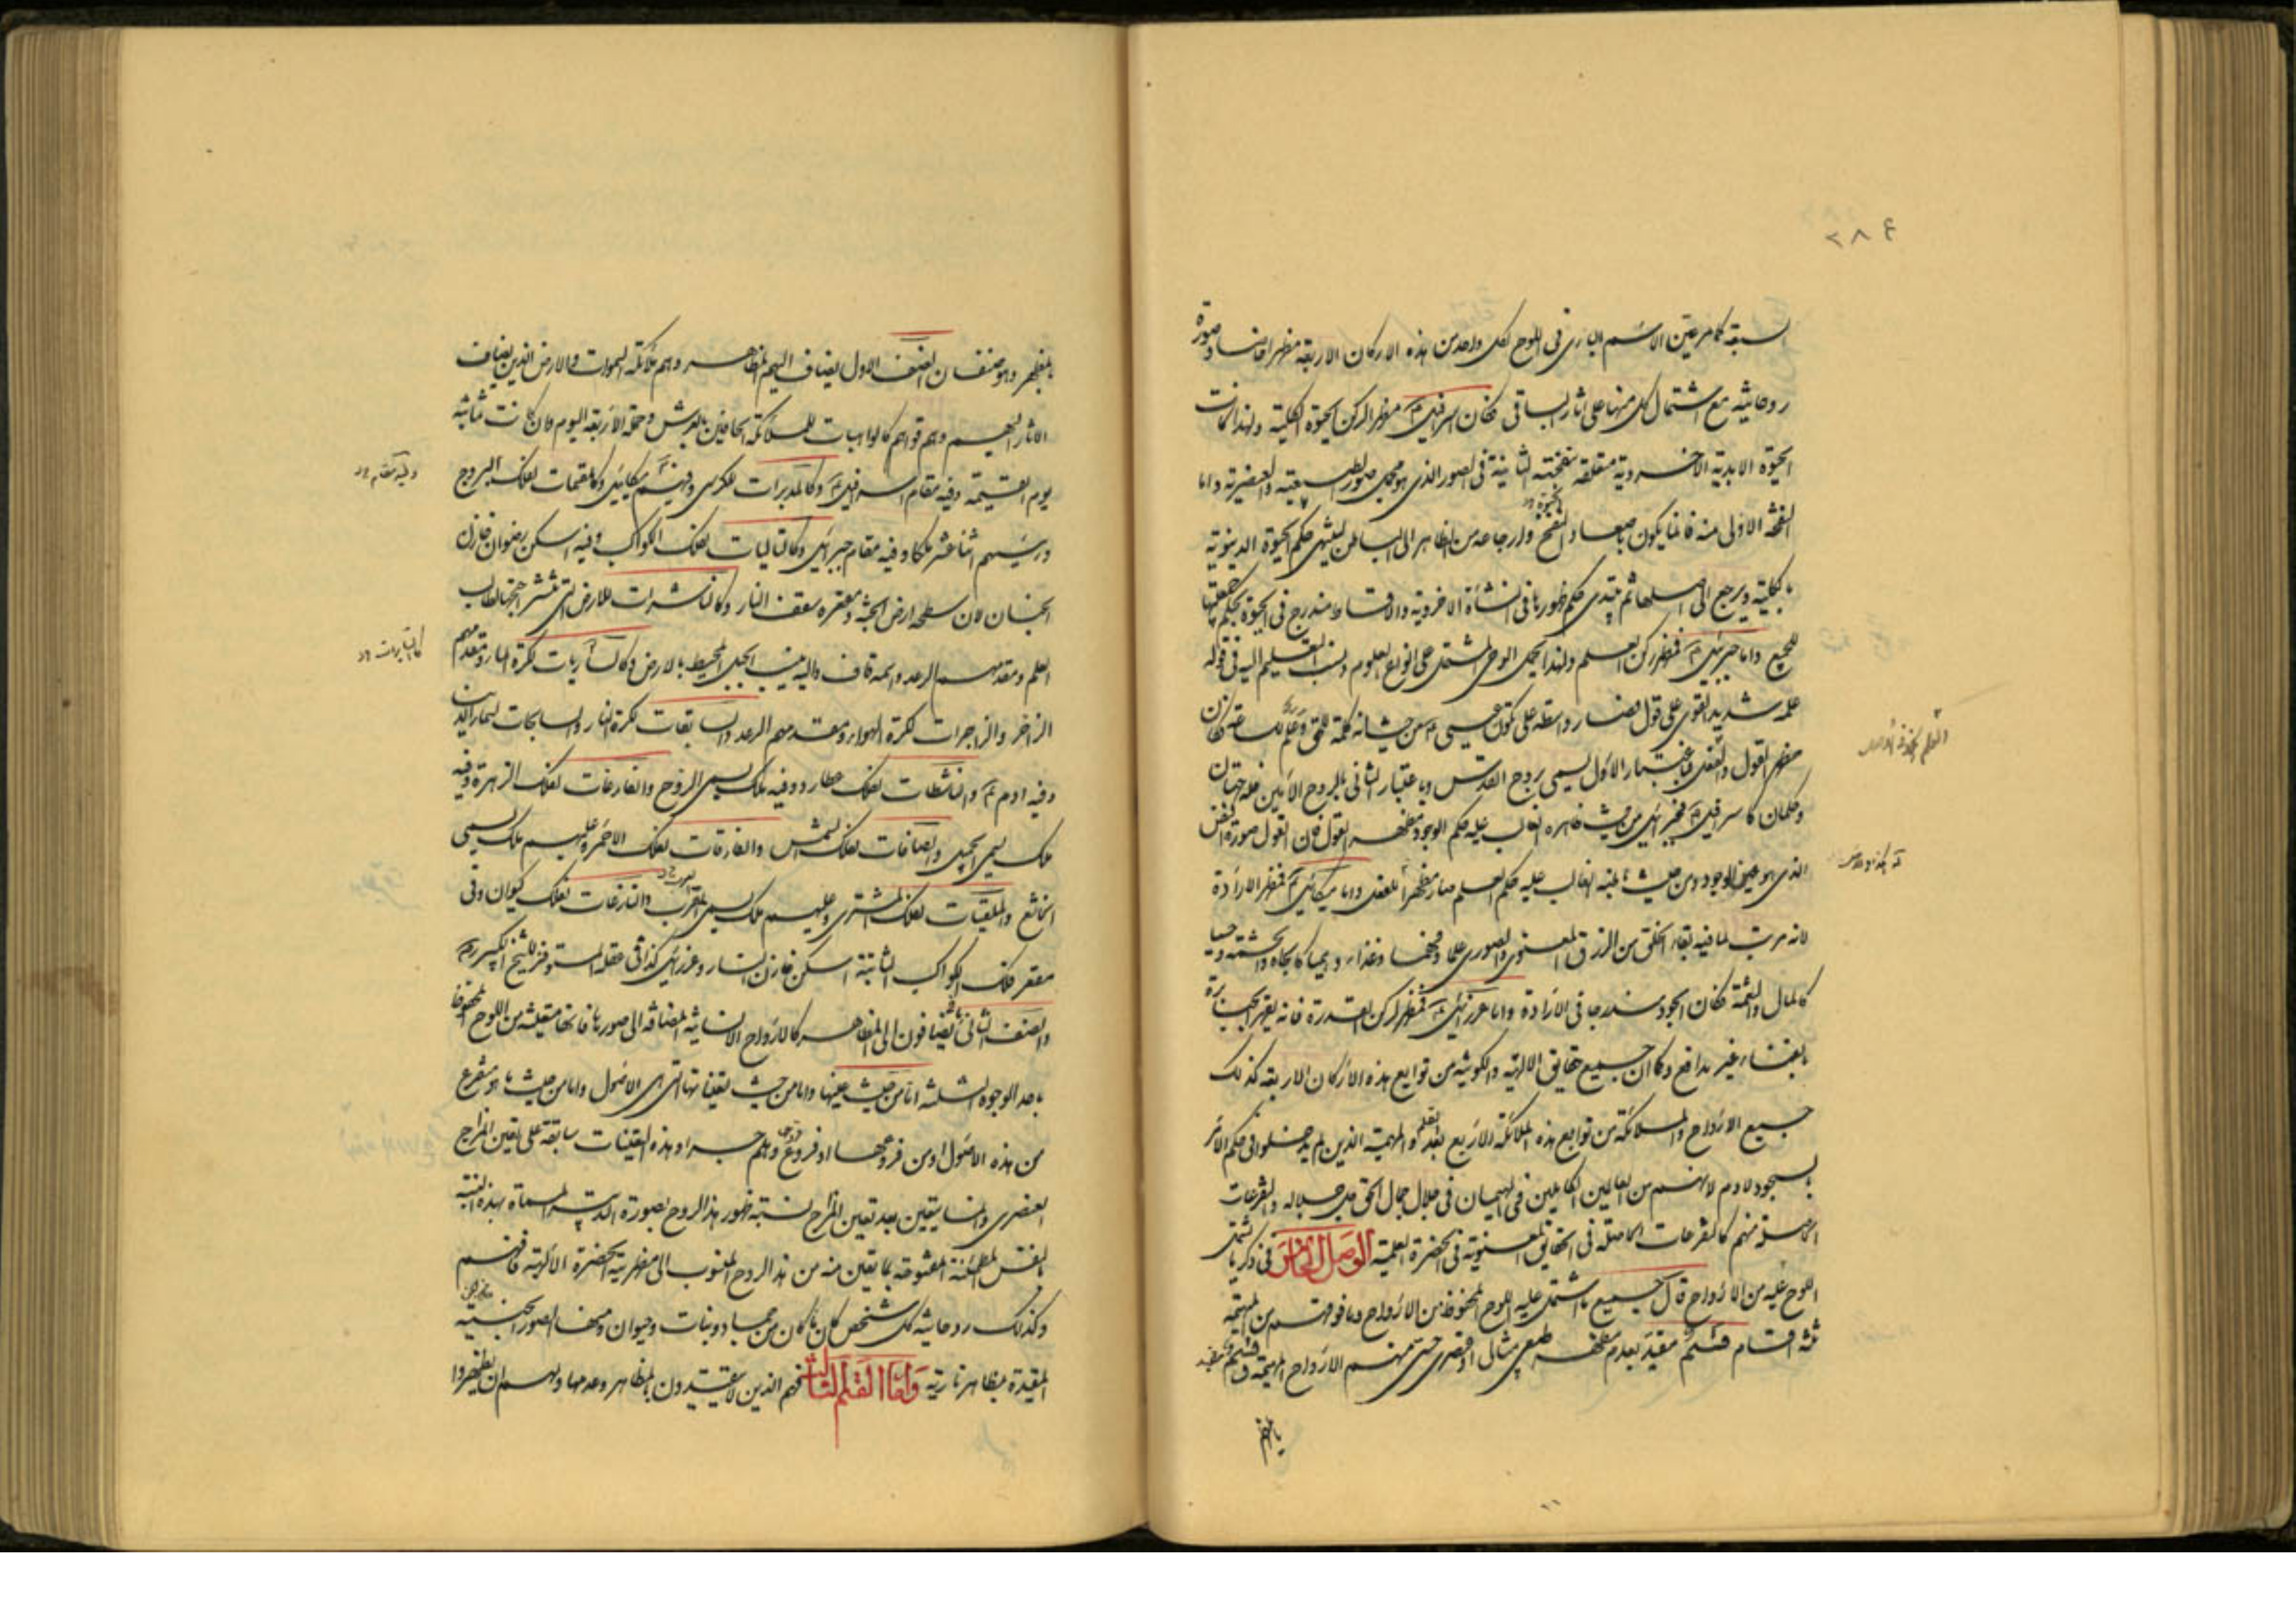 ٢٨٤
كما مر عين الاسم البارى فى اللوح لكل واحد من هذه الاركان الاربعة مظهرا وصورة
روحانية مع اشتمال كل منها على اثار الباقى فكان اسرافيل مظهر الركن الحيوة الكلية ولهذا كانت
الحيوة الابدية الاخروية متعلقة بنفخته الثانية فى الصور الذى هو محل صور الطبيعية والعنصرية واما
النفخة الاولى منه فانما يكون باصعاد النفخ وارجاعه من الظاهر الى الباطن لينتهى حكم الحيوة الدنيوية
بالكلية ويرجع الى اصلها ثم يبتدى حكم ظهورها فى النشأة الاخروية والاقساط مندرج فى الحيوة بحكم
للجميع واما جبرئيل فمظهر ركن العلم ولهذا يحمل الوحى المشتمل على انواع العلوم ونسب التعليم اليه فى قوله
علمه شديد القوى على قول فصار واسطة على تكون عيسى من حيث انه كلمة
مظهر القول والعقل فباعتبار الاول يسمى بروح القدس وباعتبار الثانى بالروح الامين فله جهتان
وحكمان كاسرافيل فجبرئيل من حيث ظاهره الغالب عليه حكم الوجود مظهر القول فان القول صورة العقل
الذى هو عين الوجود ومن حيث باطنه الغالب عليه حكم العلم صار مظهرا للعقل واما ميكائيل فمظهر الارادة
لانه مرتب لما فيه بقاء الخلق من الرزق المعنوى والصورى علما وفهما وغذاء وهميا كالجاه والحشمة وحسيا
كالمال والنعمة فكان الجود مندرجا فى الارادة واما عزرائيل فمظهر لركن القدرة فانه يقهر الجبابرة
بالفناء غير مدافع وكما ان جميع حقايق الالهية والكونية من توابع هذه الاركان الاربعة كذلك
جميع الارواح والملائكة من توابع هذه الملائكة الاربع بعد القلم والمهيمة الذين لم يدخلوا فى حكم الامر
بالسجود لادم لانهم من العالين الكاملين فى الهيمان فى جلال جمال الحق جل جلاله والتفرعات
الحاصلة منهم كالتفرعات الحاصلة فى الحقايق المعنوية فى الحضرة العلمية الوصل الخامس فى ذكر ما اشتمل
اللوح عليه من الارواح قال جميع ما اشتمل عليه اللوح المحفوظ من الارواح وما فوقهم من المهيمة
ثلثة اقسام قسم مقيد بعدم مظهر طبيعى مثالى او عنصرى حسى منهم الارواح المهيمة وقسم مقيد
بالمظهر
بالمظهر وهو صنفان الصنف الاول يضاف اليهم المظاهر وهم ملائكة السموات والارض الذين يضاف
الاثار اليهم وهم قواهم كالواهبات للملائكة الحافين بالعرش وحملته الاربعة اليوم وان كانت ثمانية
يوم القيمة وفيه مقام اسرافيل وكالمدبرات للكرسى وفيه ميكائيل وكالمقسمات لفلك البروج
ورئيسهم اثنا عشر ملكا وفيه مقام جبرائيل وكالتاليات لفلك الكواكب وفيه اسكن رضوان خازن
الجنان لان سطحه ارض الجنة ومقعره سقف النار وكالناشرات للارض التى تنشر اجنحتها لطالب
العلم ومقدمهم الرعد واسمه قاف واليه ينسب الجبل المحيط بالارض وكالساريات لكرة الماء ومقدمهم
الزاخر والزاجرات لكرة الهواء ومقدمهم الرعد والسابقات لكرة النار والسابحات لسماء الدنيا
وفيه ادم والناشطات لفلك عطارد وفيه ملك يسمى الروح والفارغات لفلك الزهرة وفيه
ملك يسمى الجميل والصافات لفلك الشمس والفارقات لفلك الاحمر وعليهم ملك يسمى
الخاشع والملقيات لفلك المشترى وعليهم ملك يسمى المقرب والنازعات لفلك كيوان وفى
مقعر فلك الكواكب الثابتة اسكن خازن النار وعزرائيل كذا فى عقلة المستوفز للشيخ الكبير
والصنف الثانى يضافون الى المظاهر كالارواح الانسانية المضافة الى صورها فانها متعينة من اللوح المحفوظ
باحد الوجوه الثلثة اما من حيث عينها واما من حيث تعيناتها التى هى الاصول واما من حيث ما هو متفرع
من هذه الاصول او من فروعها او فروع فروعها وهلم جرا وهذه التعينات سابقة على تعين المزاج
العنصرى وانما يتعين بعد تعين المزاج نسبة ظهور هذا الروح بصورة التدبير المسماة بهذه النسبة
بالنفس المطمئنة المنعوتة بما تعين منه من هذا الروح المنسوب الى مظهرية الحضرة الالهية فافهم
وكذلك روحانية كل شخص كان ما كان من جماد ونبات وحيوان ومنها الصور الجنية
المقيدة بمظاهر نارية واما القسم الثالث فهم الذين لا يتقيدون بالمظاهر وعدمها ولهم ان يظهروا